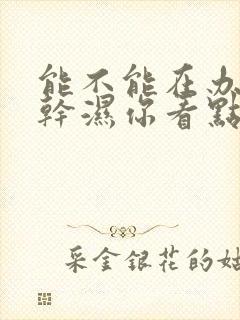 能不能在办
幹濕你看點
采金銀花的姑